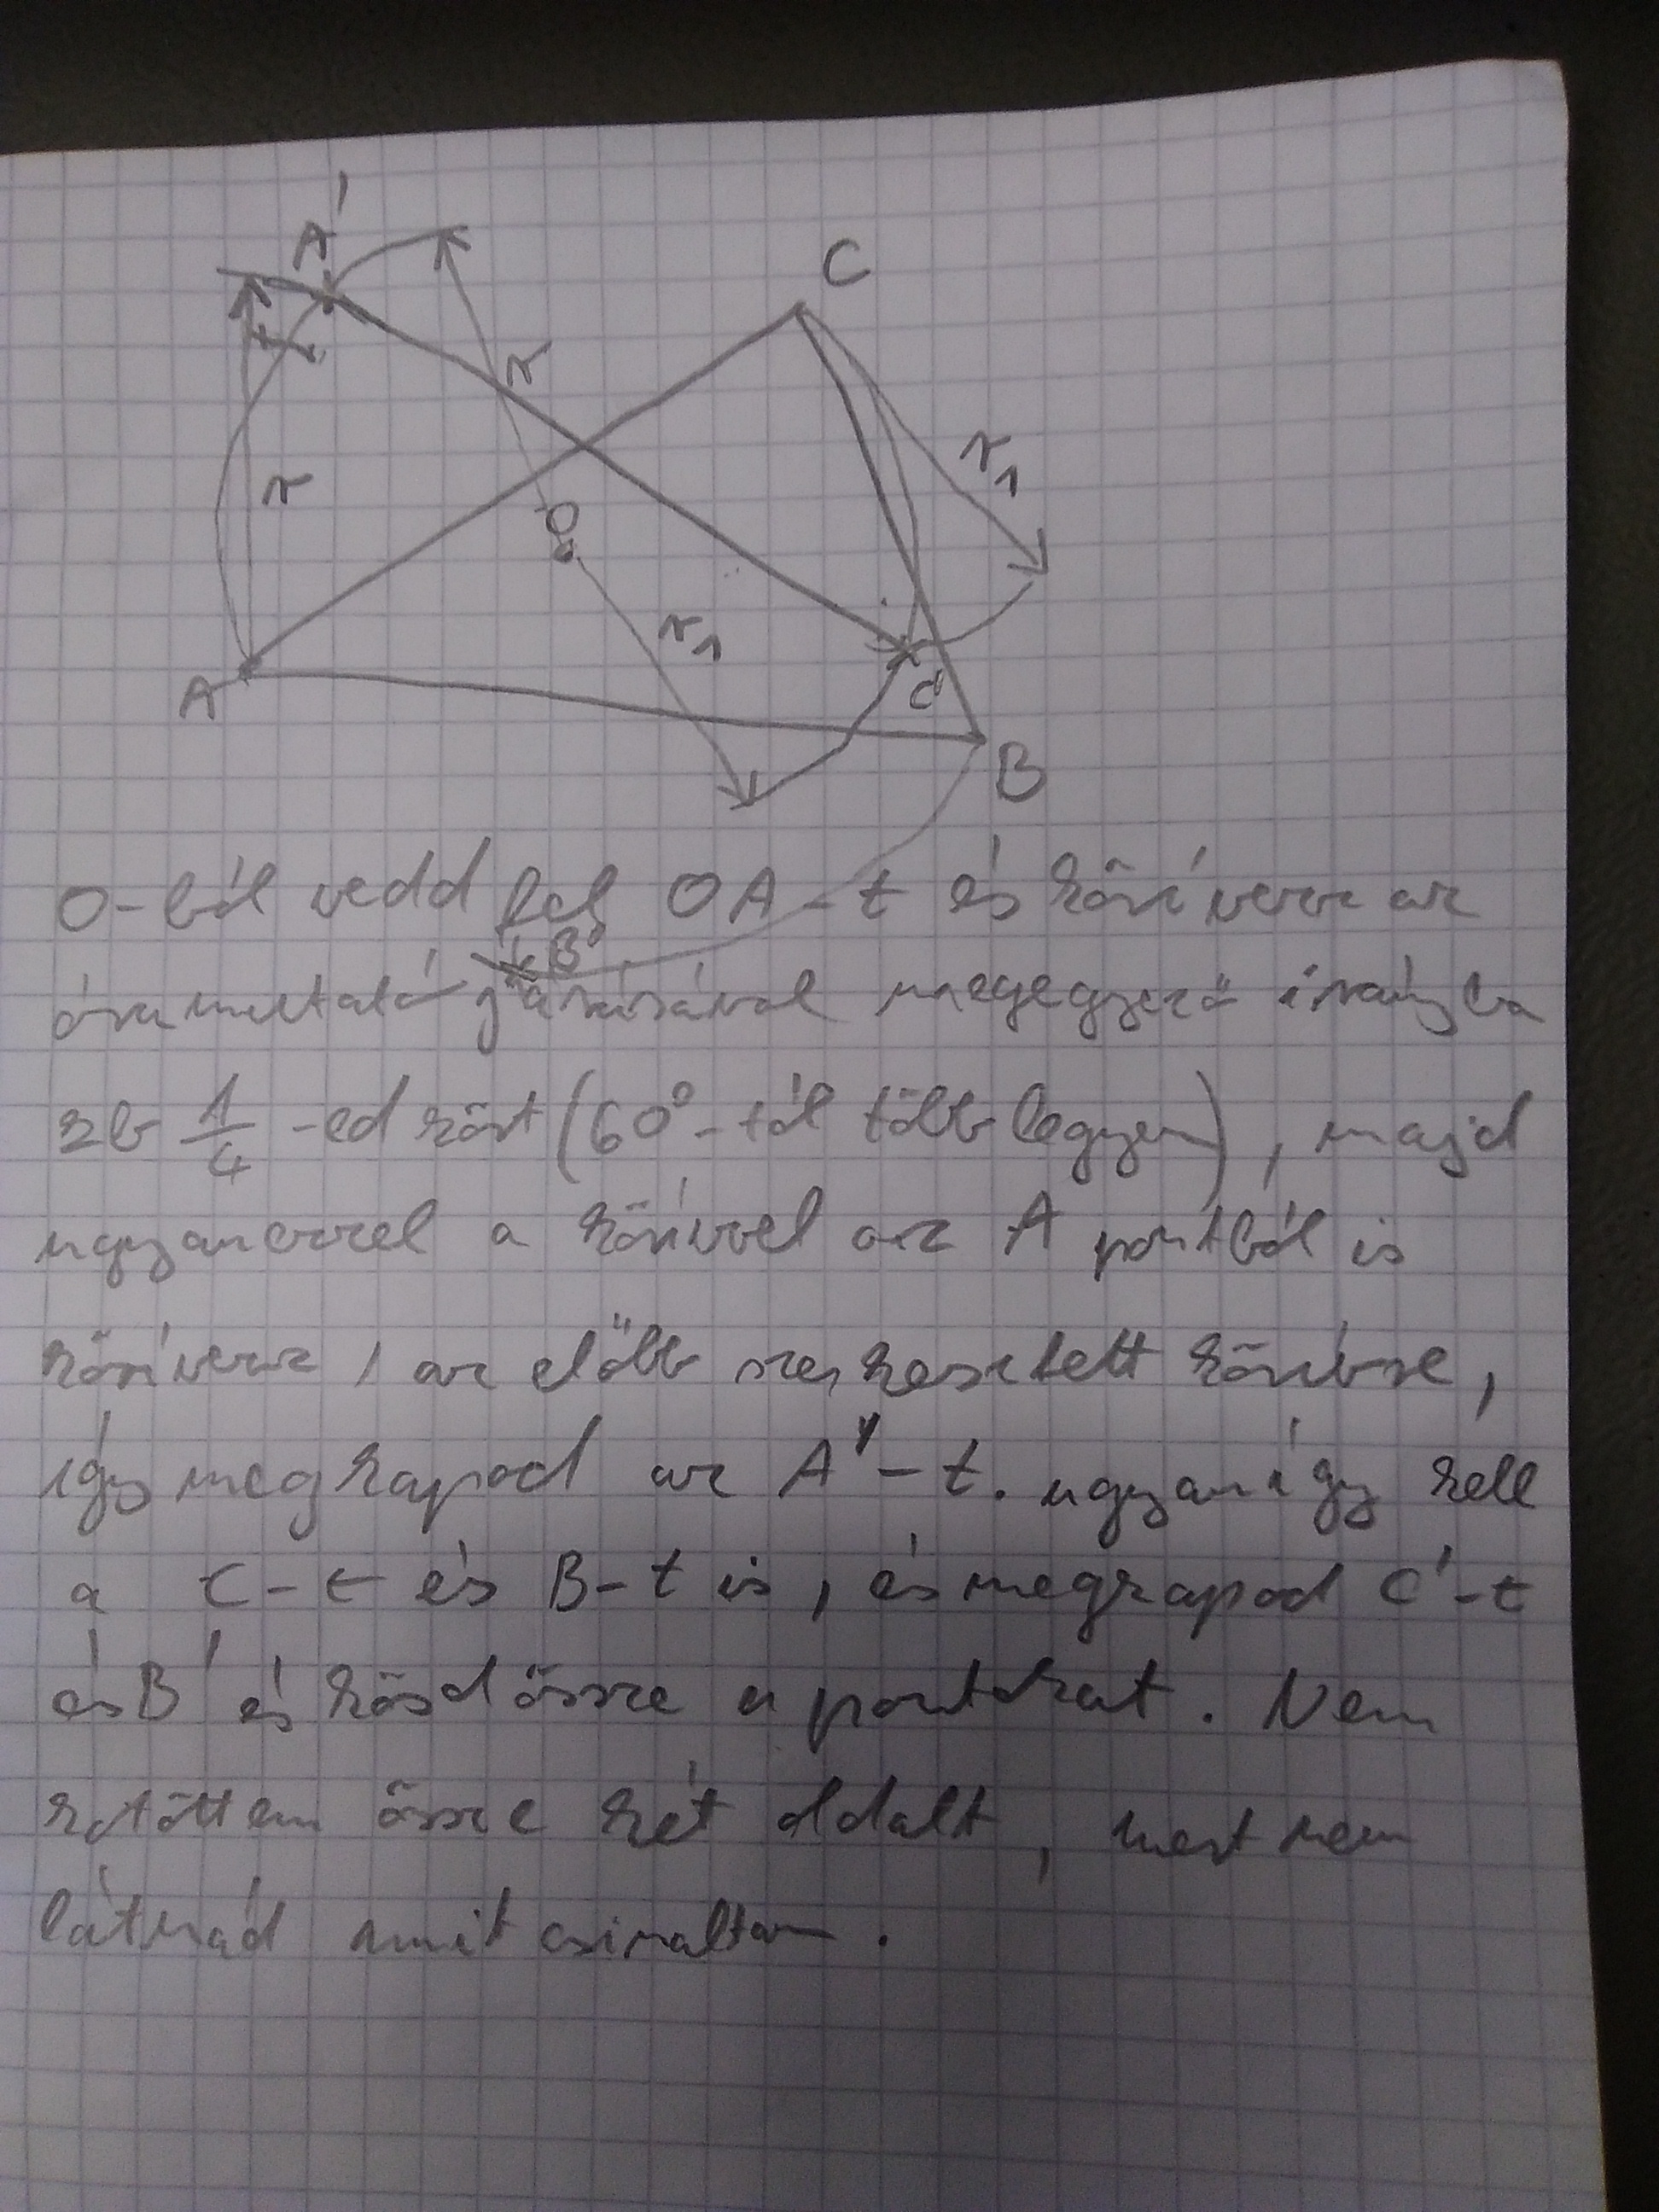 A'
C
r
r
r₁
O
r₁
A
C'
B
O-ból vedd fel OA-t és körívezz az
B'
óramutató járásával megegyező irányba
kb 1/4-ed kört (60°-tól több legyen), majd
ugyanezzel a körívvel az A pontból is
körívezz, az előbb szerkesztett körívbe,
így megkapod az A'-t. ugyanígy kell
a C-t és B-t is, és megkapod C'-t
és B' és kösd össze a pontokat. Nem
kötöttem össze két oldalt, mert nem
látnád amit csináltam.